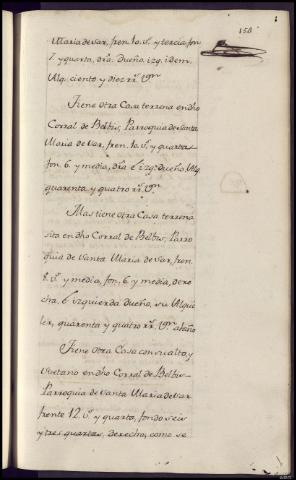 150
Maria de var, fren. 10. v.s y tercia, fon.
7. y quarta, dra. dueño, izq. idem.
Alq. ciento y diez rr.s vn
Tiene otra Casa terrena en dho
Corral de Beltus, Parroquia de santa
Maria de var, fren. 10. v.s y quarta,
fon. 6. y media, dra. é izq. dueño, Alq.
quarenta y quatro rr.s vn
Mas tiene otra Casa terrena
sita en dho Corral de Beltus, Parro
quia de Santa Maria de var, fren.
8. v.s y media, fon. 6. y media, dere
cha, é izquierda dueño, su Alqui
ler, quarenta y quatro rr.s vn al año
Tiene otra Casa con su alto, y
en dho Corral de Beltus
Parroquia de Santa Maria de var
frente 12. v.s y quarta, fondo seis
y tres quartas, derecha, como se